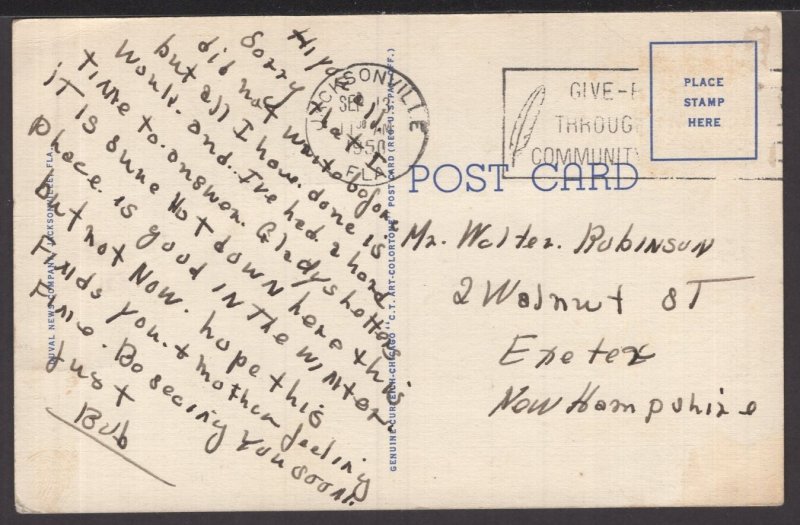 Hiya
Sorry that I
did not write before
but all I have done is
work. and. I've had a hard
time to. answer. Gladys letters
it is sure Hot down here this
place. is good in the winter.
but not now. hope this
Finds you. & mother feeling
Fine. Be seeing you soon.
Just
Bub
JACKSONVILLE
SEP
11 AM
1950
FLA
GIVE-
THROUG
COMMUNIT
PLACE
STAMP
HERE
POST CARD
Mr. Walter. Robinson
2 Walnut ST
Exeter
New Hampshire
DUVAL NEWS COMPANY, JACKSONVILLE, FLA.
GENUINE CURTEICH-CHICAGO "C.T. ART-COLORTONE" POST CARD (REG. U.S. PAT. OFF.)